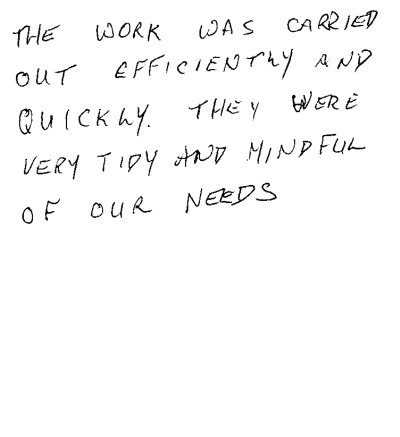 THE WORK WAS CARRIED
OUT EFFICIENTLY AND
QUICKLY. THEY WERE
VERY TIDY AND MINDFUL
OF OUR NEEDS